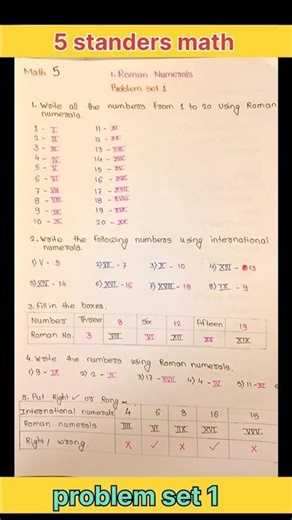 5 standers math
Math 5
1. Roman Numerals
Problem set 1
1. Write all the numbers from 1 to 20 using Roman
numerals.
1 - I 11 - XI
2 - II 12 - XII
3 - III 13 - XIII
4 - IV 14 - XIV
5 - V 15 - XV
6 - VI 16 - XVI
7 - VII 17 - XVII
8 - VIII 18 - XVIII
9 - IX 19 - XIX
10 - X 20 - XX
2. Write the following numbers using international
numerals.
1) V - 5 2) VII - 7 3) X - 10 4) XIII - 13
5) XIV - 14 6) XVI - 16 7) XVIII - 18 8) IX - 9
3. Fill in the boxes.
Number Three 8 Six 12 fifteen 19
Roman No. 3 VIII VI XII XV XIX
4. Write the numbers using Roman numerals.
1) 9 - IX 2) 2 - II 3) 17 - XVII 4) 4 - IV 5) 11 - XI
5. Put Right ✓ or Rong ×
International numerals 4 6 8 16 15
Roman numerals IIII VI IIX XVI VVV
Right / wrong. × ✓ × ✓ ×
problem set 1